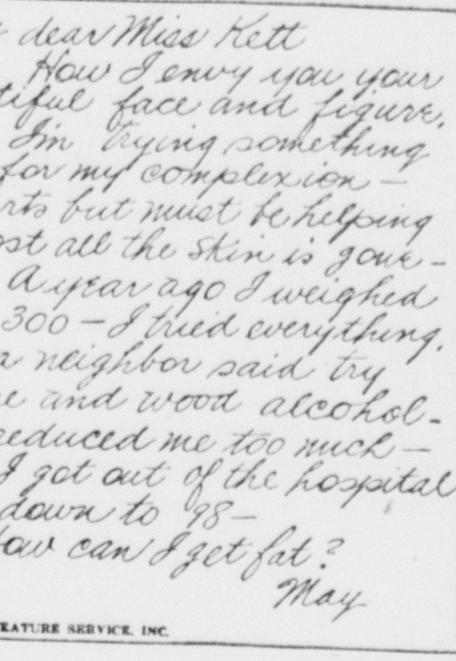 dear Miss Kett
How I envy you your
tiful face and figure.
I'm trying something
for my complexion —
rts but must be helping
ost all the skin is gone -
A year ago I weighed
300 — I tried everything.
a neighbor said try
e and wood alcohol -
reduced me too much —
I got out of the hospital
down to 98 —
ow can I get fat?
May
EATURE SERVICE, INC.